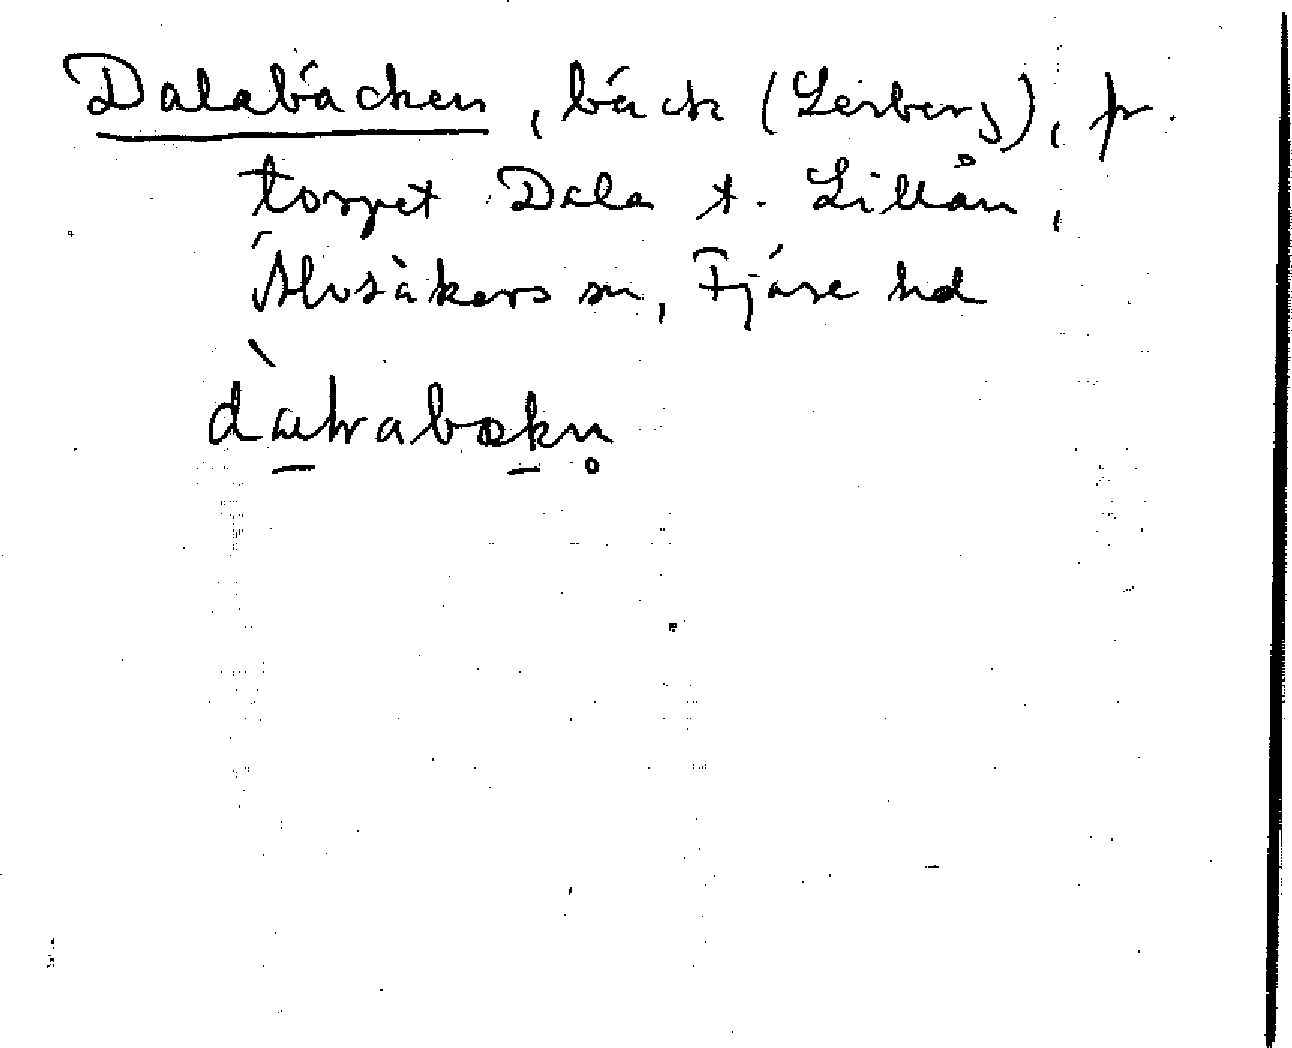 Dalabäcken, bäck (Lerberg), fr.
torpet Dala t. Lillån,
Älvsåkers sn, Fjäre hd